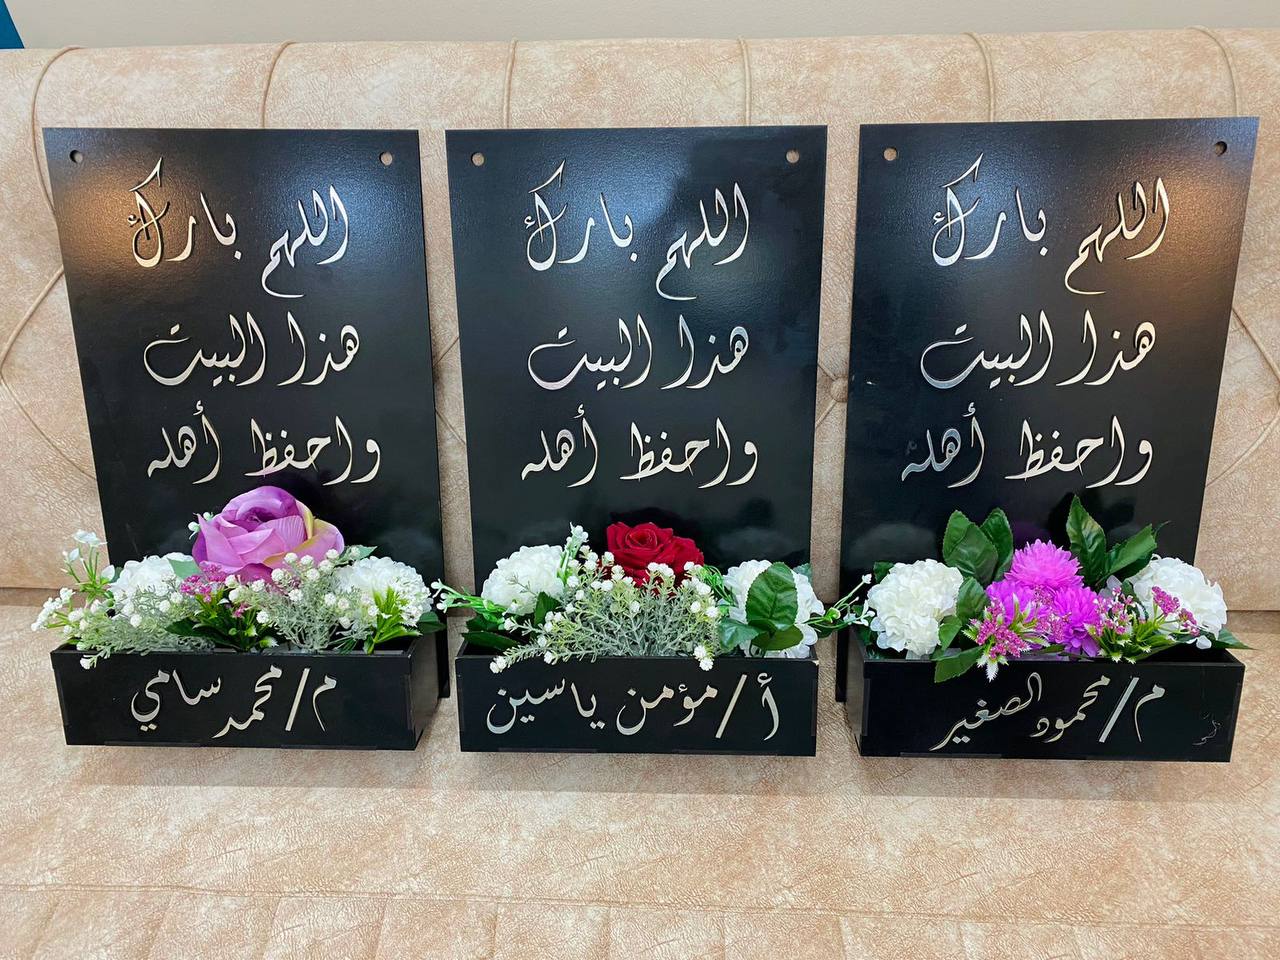 اللهم بارك
هذا البيت
واحفظ أهله
م/محمد سامي
اللهم بارك
هذا البيت
واحفظ أهله
أ/مؤمن ياسين
اللهم بارك
هذا البيت
واحفظ أهله
م/محمود الصغير